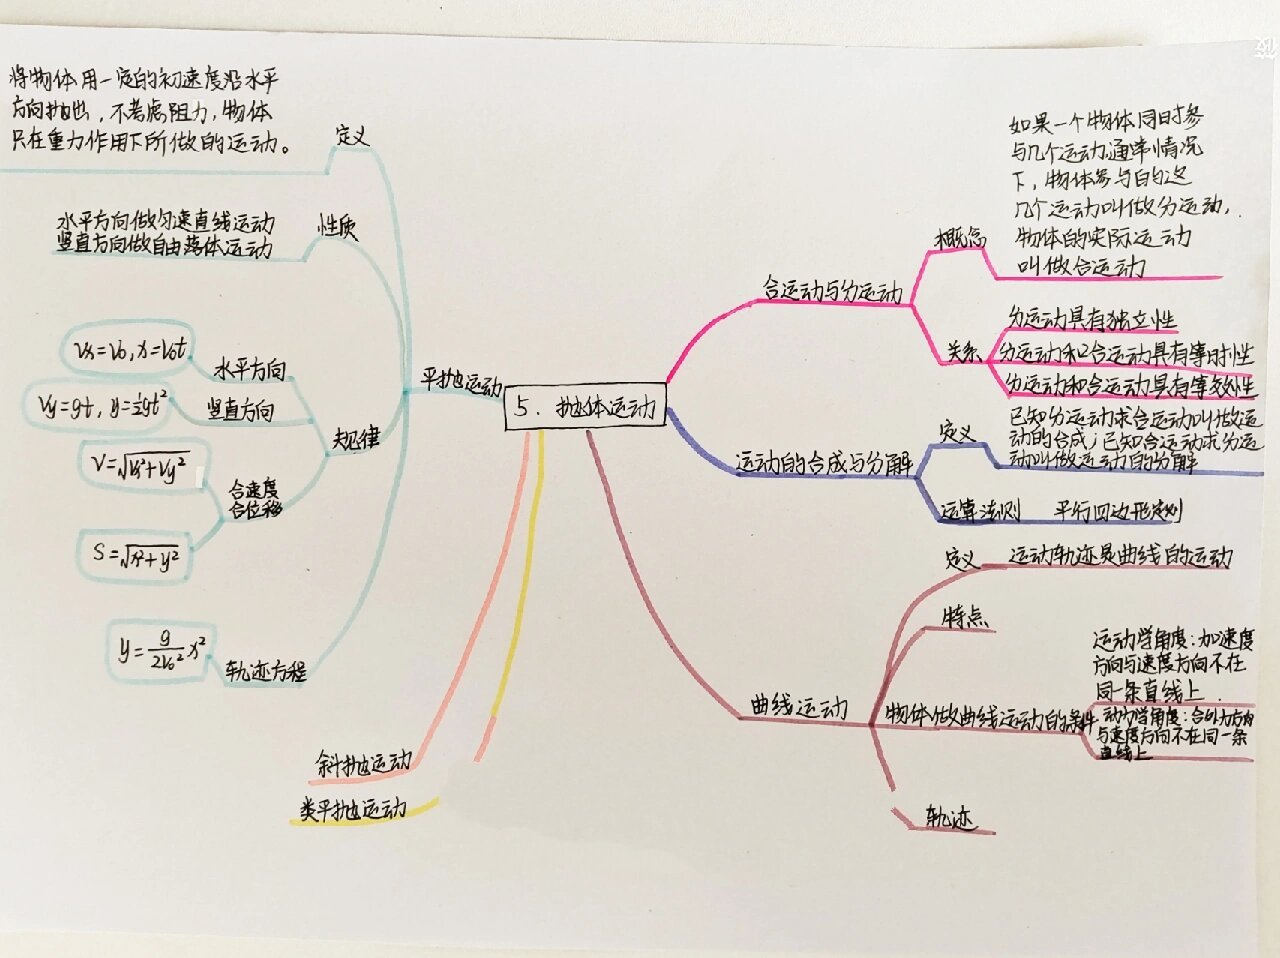 将物体用一定的初速度沿水平
方向抛出，不考虑阻力，物体
只在重力作用下所做的运动。
定义
水平方向做匀速直线运动
竖直方向做自由落体运动
性质
Vx=V0,x=V0t
水平方向
Vy=gt,y=½gt²
竖直方向
规律
V=√Vx²+Vy²
合速度
合位移
S=√x²+y²
y=g/2V0² x²
轨迹方程
平抛运动
5. 抛体运动
斜抛运动
类平抛运动
合运动与分运动
概念
如果一个物体同时参
与几个运动,通常情况
下，物体参与的这
几个运动叫做分运动,
物体的实际运动
叫做合运动
关系
分运动具有独立性
分运动和合运动具有等时性
分运动和合运动具有等效性
运动的合成与分解
定义
已知分运动求合运动叫做运
动的合成；已知合运动求分运
动叫做运动的分解
运算法则 平行四边形定则
曲线运动
定义 运动轨迹是曲线的运动
特点
物体做曲线运动的条件
运动学角度：加速度
方向与速度方向不在
同一条直线上.
动力学角度：合外力方向
与速度方向不在同一条
直线上
轨迹